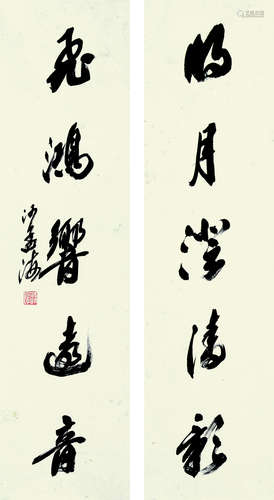 明月澄清影
飛鴻響遠音
沙孟海